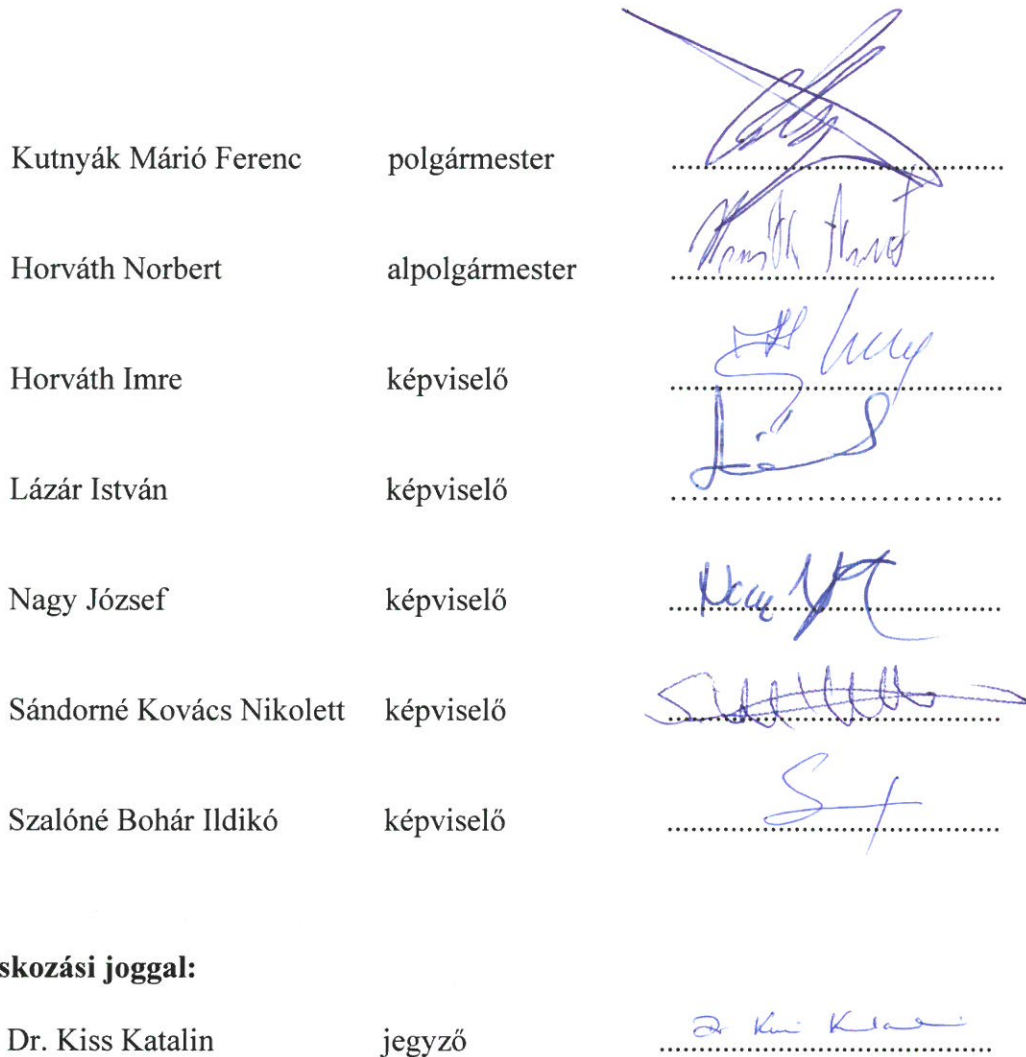 Kutnyák Márió Ferenc polgármester ........................................
Horváth Norbert alpolgármester ........................................
Horváth Imre képviselő ........................................
Lázár István képviselő ........................................
Nagy József képviselő ........................................
Sándorné Kovács Nikolett képviselő ........................................
Szalóné Bohár Ildikó képviselő ........................................
skozási joggal:
Dr. Kiss Katalin jegyző ........................................